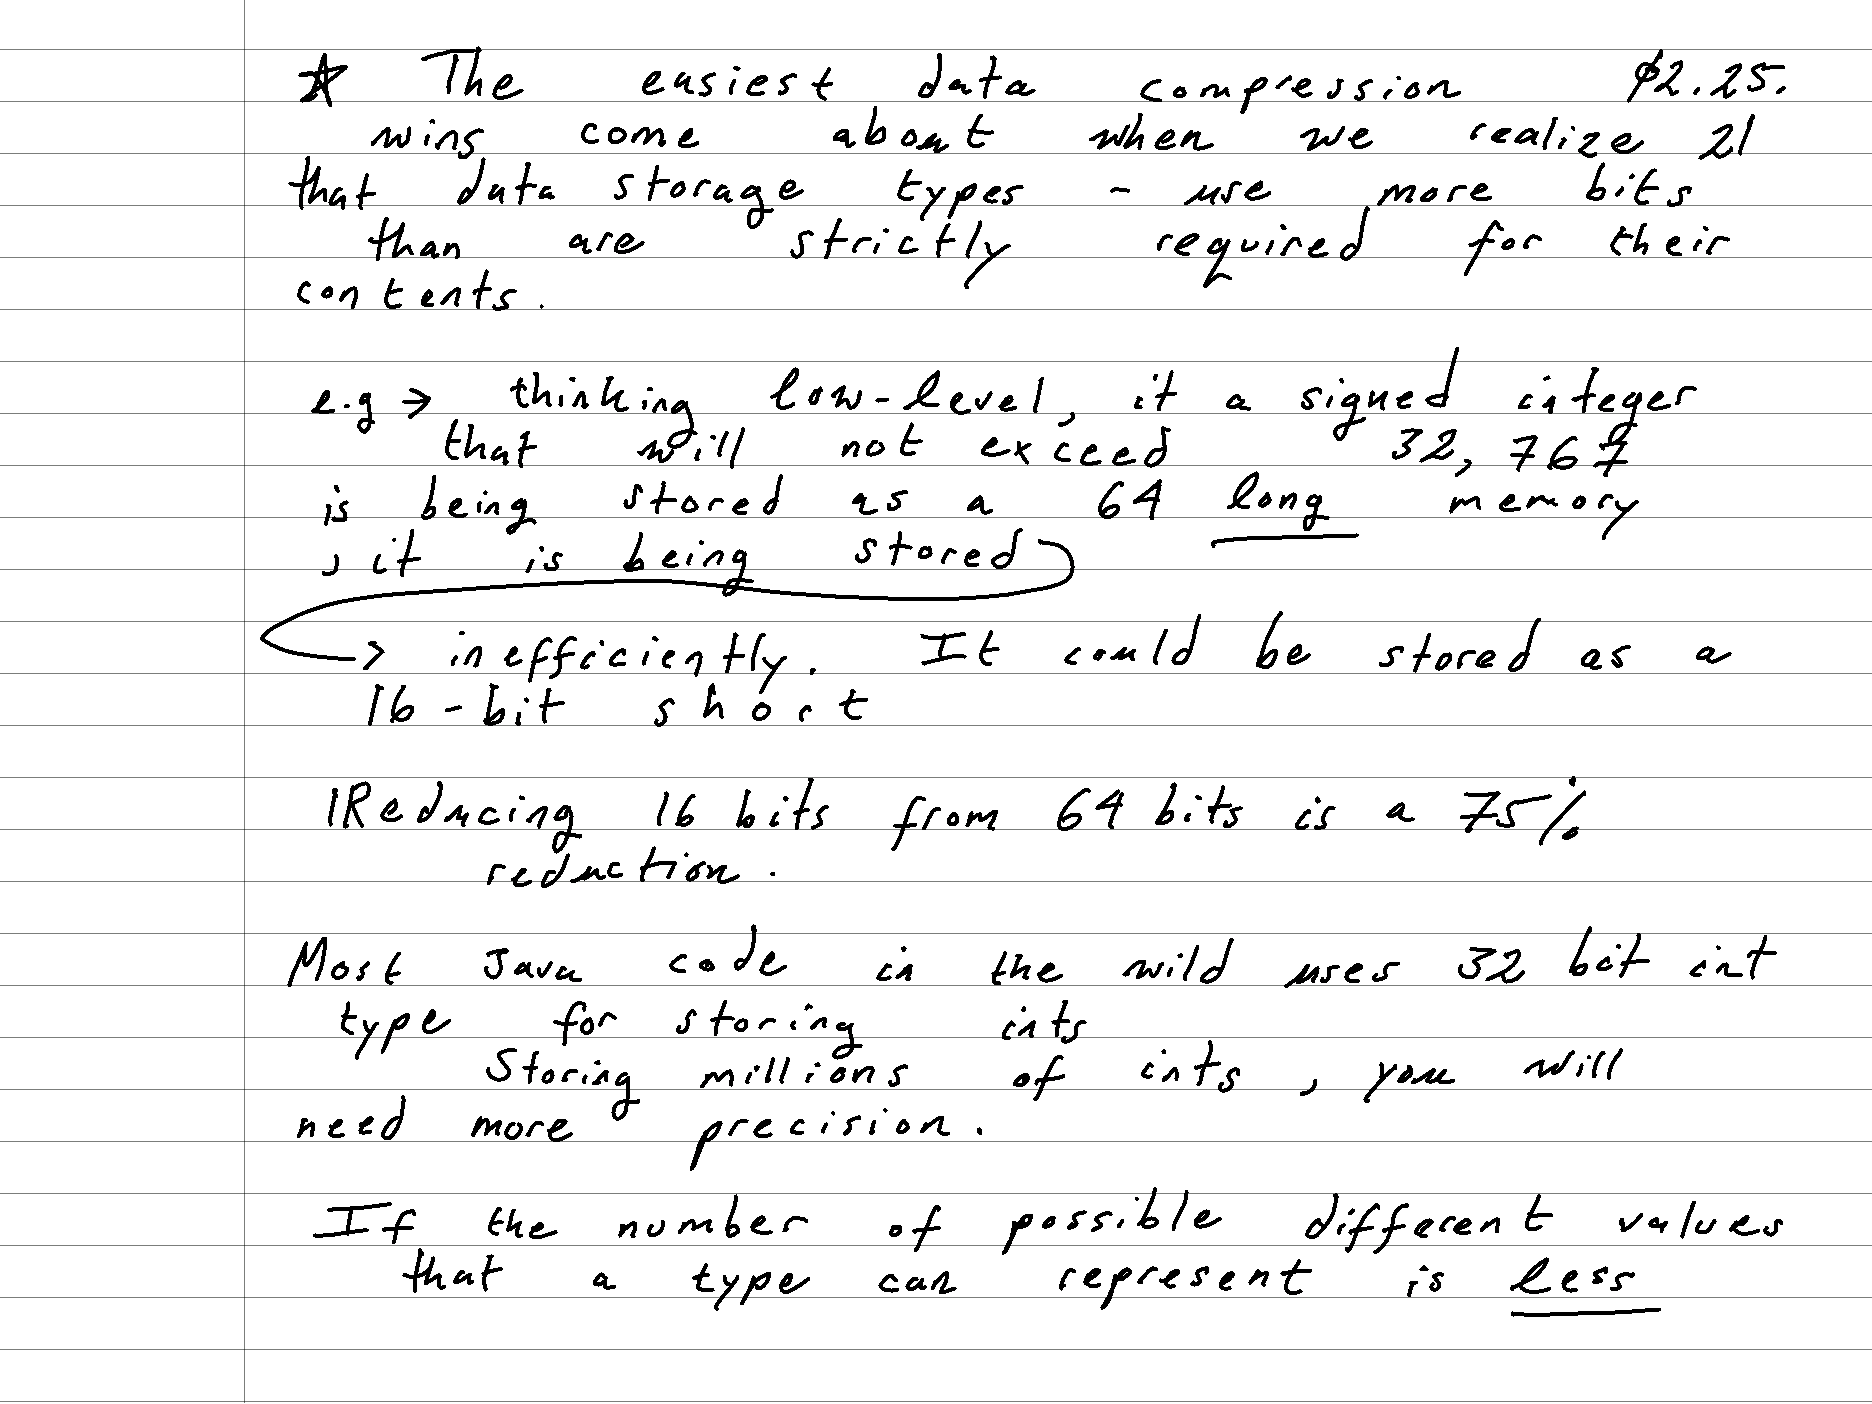 ☆ The easiest data compression $2.25.
wins come about when we realize 21
that data storage types - use more bits
than are strictly required for their
contents.
e.g → thinking low-level, if a signed integer
that will not exceed 32,767
is being stored as a 64 long memory
, it is being stored
→ inefficiently. It could be stored as a
16-bit short
Reducing 16 bits from 64 bits is a 75%
reduction.
Most Java code in the wild uses 32 bit int
type for storing ints
Storing millions of ints, you will
need more precision.
If the number of possible different values
that a type can represent is less